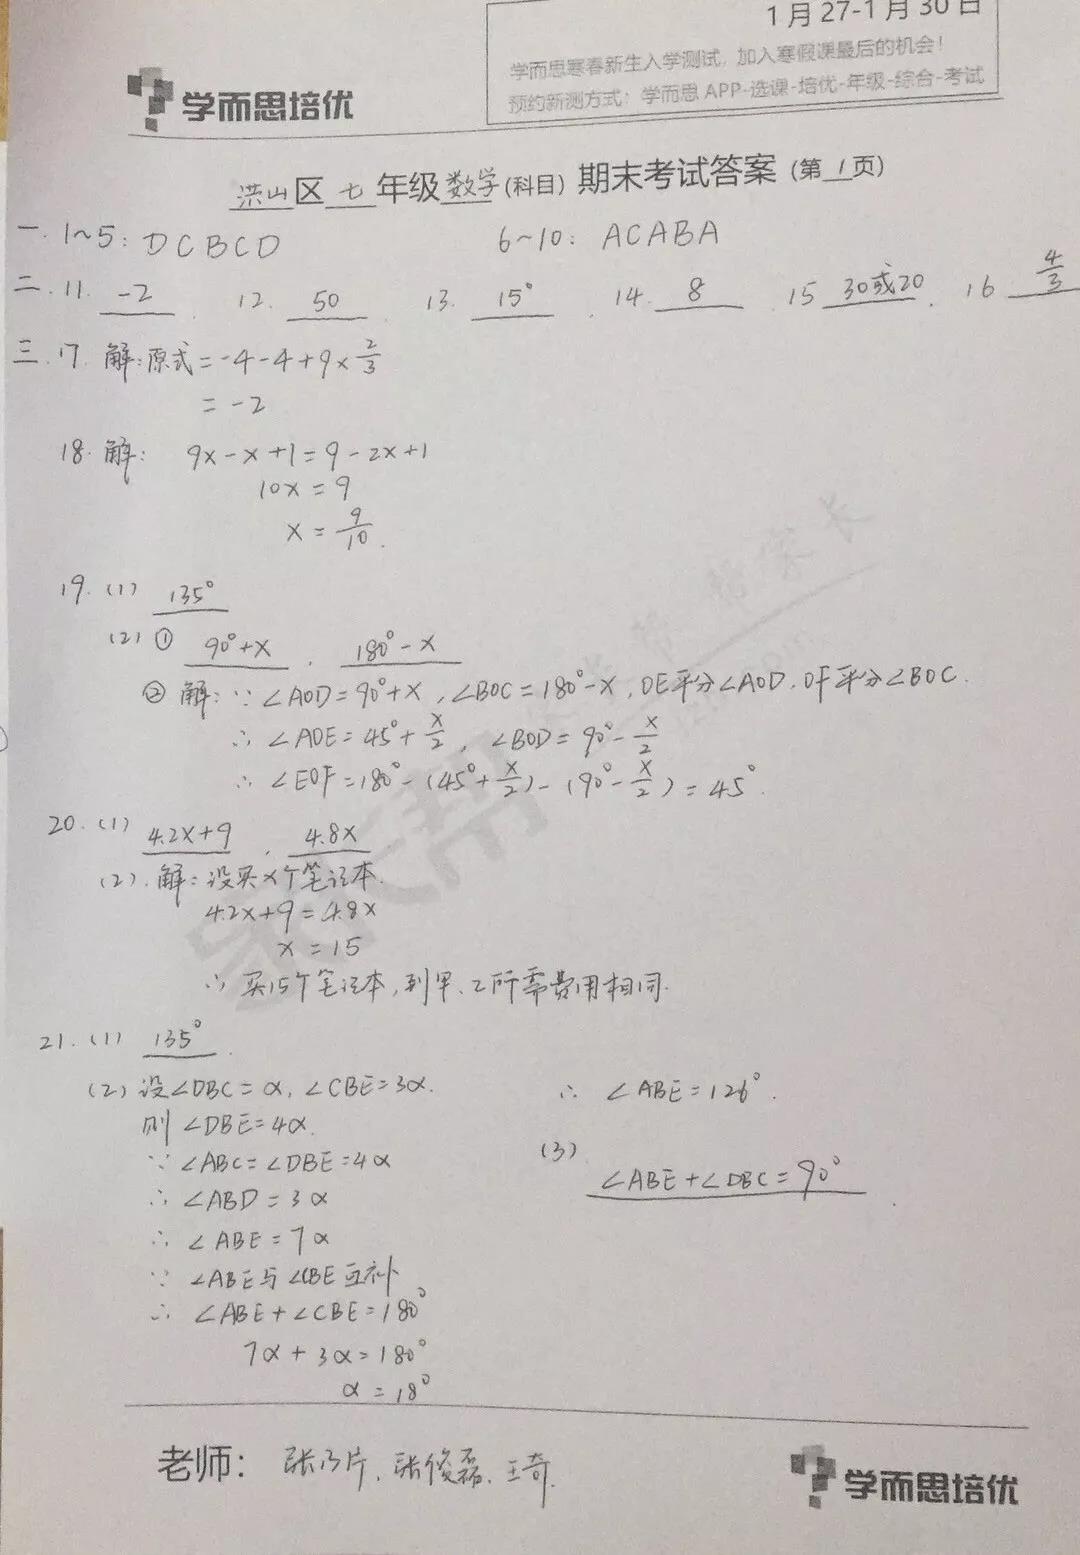 1月27-1月30日
学而思寒春新生入学测试，加入寒假课最后的机会！
预约新测方式：学而思APP-选课-培优-年级-综合-考试
学而思培优
洪山区七年级数学(科目)期末考试答案(第1页)
一.1~5：DCBCD 6~10：ACABA
二.11. -2 . 12. 50 13. 15° . 14. 8 15 30或20 . 16 4/3
三.17. 解：原式=-4-4+9×2/3
=-2
18.解： 9x-x+1=9-2x+1
10x=9
x=9/10.
19.(1) 135°
(2)① 90°+x . 180°-x
②解：∵∠AOD=90°+x，∠BOC=180°-x，OE平分∠AOD.OF平分∠BOC.
∴∠AOE=45°+x/2，∠BOD=90°-x/2
∴∠EOF=180°-(45°+x/2)-(90°-x/2)=45°.
20.(1) 4.2x+9 . 4.8x
(2).解：设买x个笔记本.
4.2x+9=4.8x
x=15
∴买15个笔记本,到甲、乙所需费用相同.
21.(1) 135°.
(2)设∠DBC=α,∠CBE=3α.
则∠DBE=4α.
∵∠ABC=∠DBE=4α
∴∠ABD=3α
∴∠ABE=7α
∵∠ABE与∠CBE互补
∴∠ABE+∠CBE=180°
7α+3α=180°
α=18°
∴∠ABE=126°.
(3)
∠ABE+∠DBC=90°
老师：张乃片、张俊磊、王奇.
学而思培优